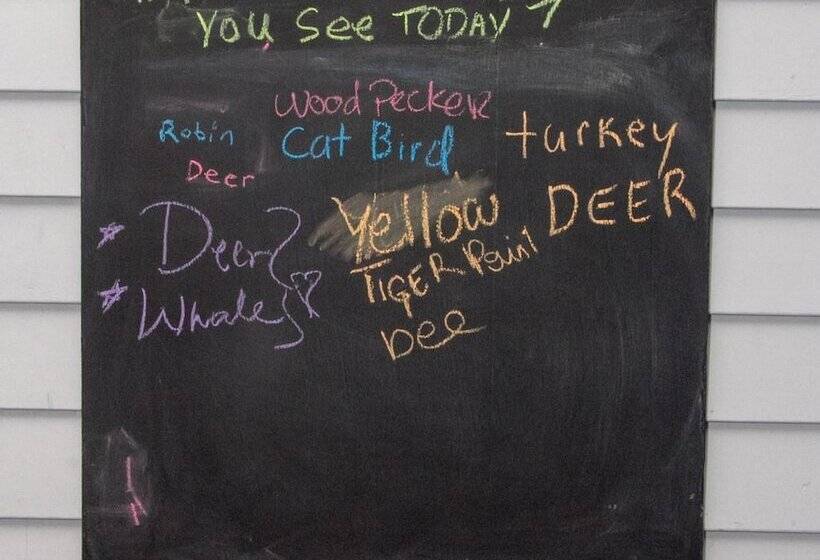 You See TODAY ?
Wood Pecker
Robin
Cat Bird
turkey
Deer
DEER
Yellow
Deer
TIGER
Whale